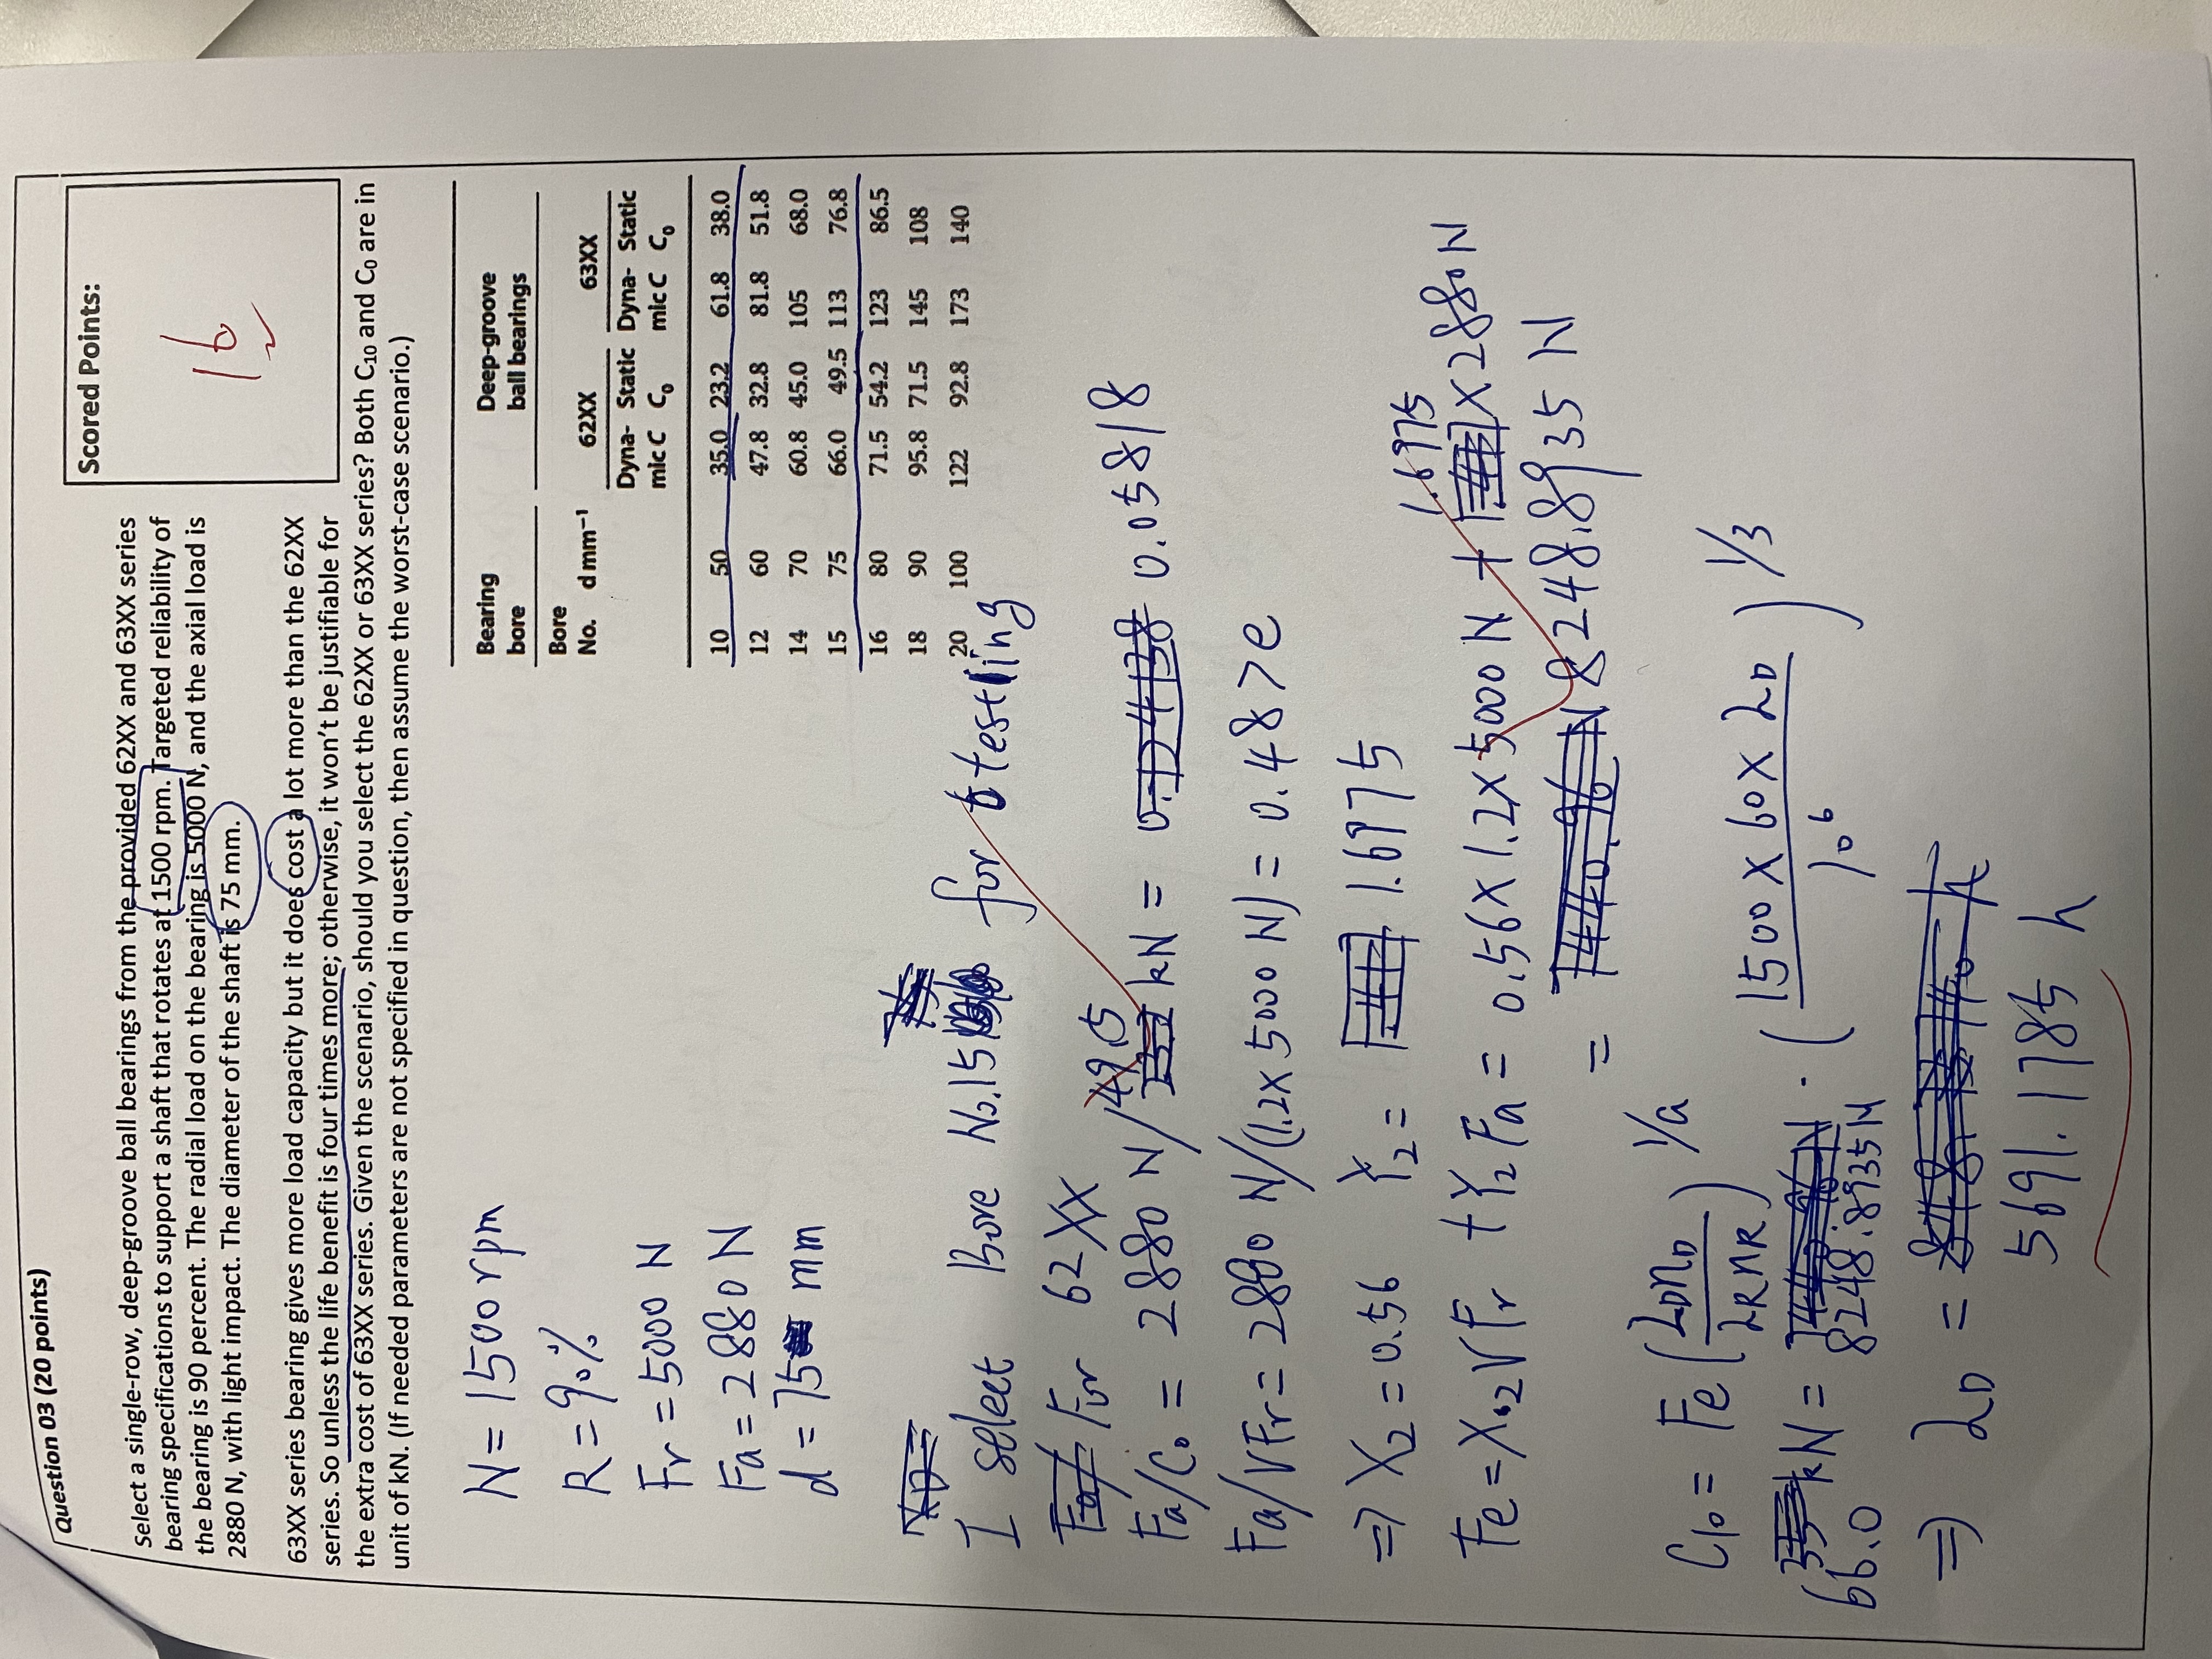 Question 03 (20 points)
Scored Points:
16
Select a single-row, deep-groove ball bearings from the provided 62XX and 63XX series
bearing specifications to support a shaft that rotates at 1500 rpm. Targeted reliability of
the bearing is 90 percent. The radial load on the bearing is 5000 N, and the axial load is
2880 N, with light impact. The diameter of the shaft is 75 mm.
63XX series bearing gives more load capacity but it does cost a lot more than the 62XX
series. So unless the life benefit is four times more; otherwise, it won't be justifiable for
the extra cost of 63XX series. Given the scenario, should you select the 62XX or 63XX series? Both C10 and C0 are in
unit of kN. (If needed parameters are not specified in question, then assume the worst-case scenario.)
Bearing bore Deep-groove ball bearings
Bore No. d mm⁻¹ 62XX 63XX
Dyna-mic C Static C0 Dyna-mic C Static C0
10 50 35.0 23.2 61.8 38.0
12 60 47.8 32.8 81.8 51.8
14 70 60.8 45.0 105 68.0
15 75 66.0 49.5 113 76.8
16 80 71.5 54.2 123 86.5
18 90 95.8 71.5 145 108
20 100 122 92.8 173 140
N = 1500 rpm
R = 90%
Fr = 5000 N
Fa = 2880 N
d = 75 mm
I select Bore No.15 for testing
For 62XX
Fa/C0 = 2880 N/49.5 kN = 0.05818
Fa/VFr = 2880 N/(1.2x5000 N) = 0.48 > e
⇒ X2 = 0.56 Y2 = 1.6975
Fe = X2VFr + Y2Fa = 0.56x1.2x5000 N + 1.6975 x 2880 N
= 8248.8935 N
C10 = Fe (LDnD / LRnR)^1/a
66.0 kN = 8248.8935 N · (1500 x 60 x LD / 10^6)^1/3
⇒ LD = 5691.1785 h